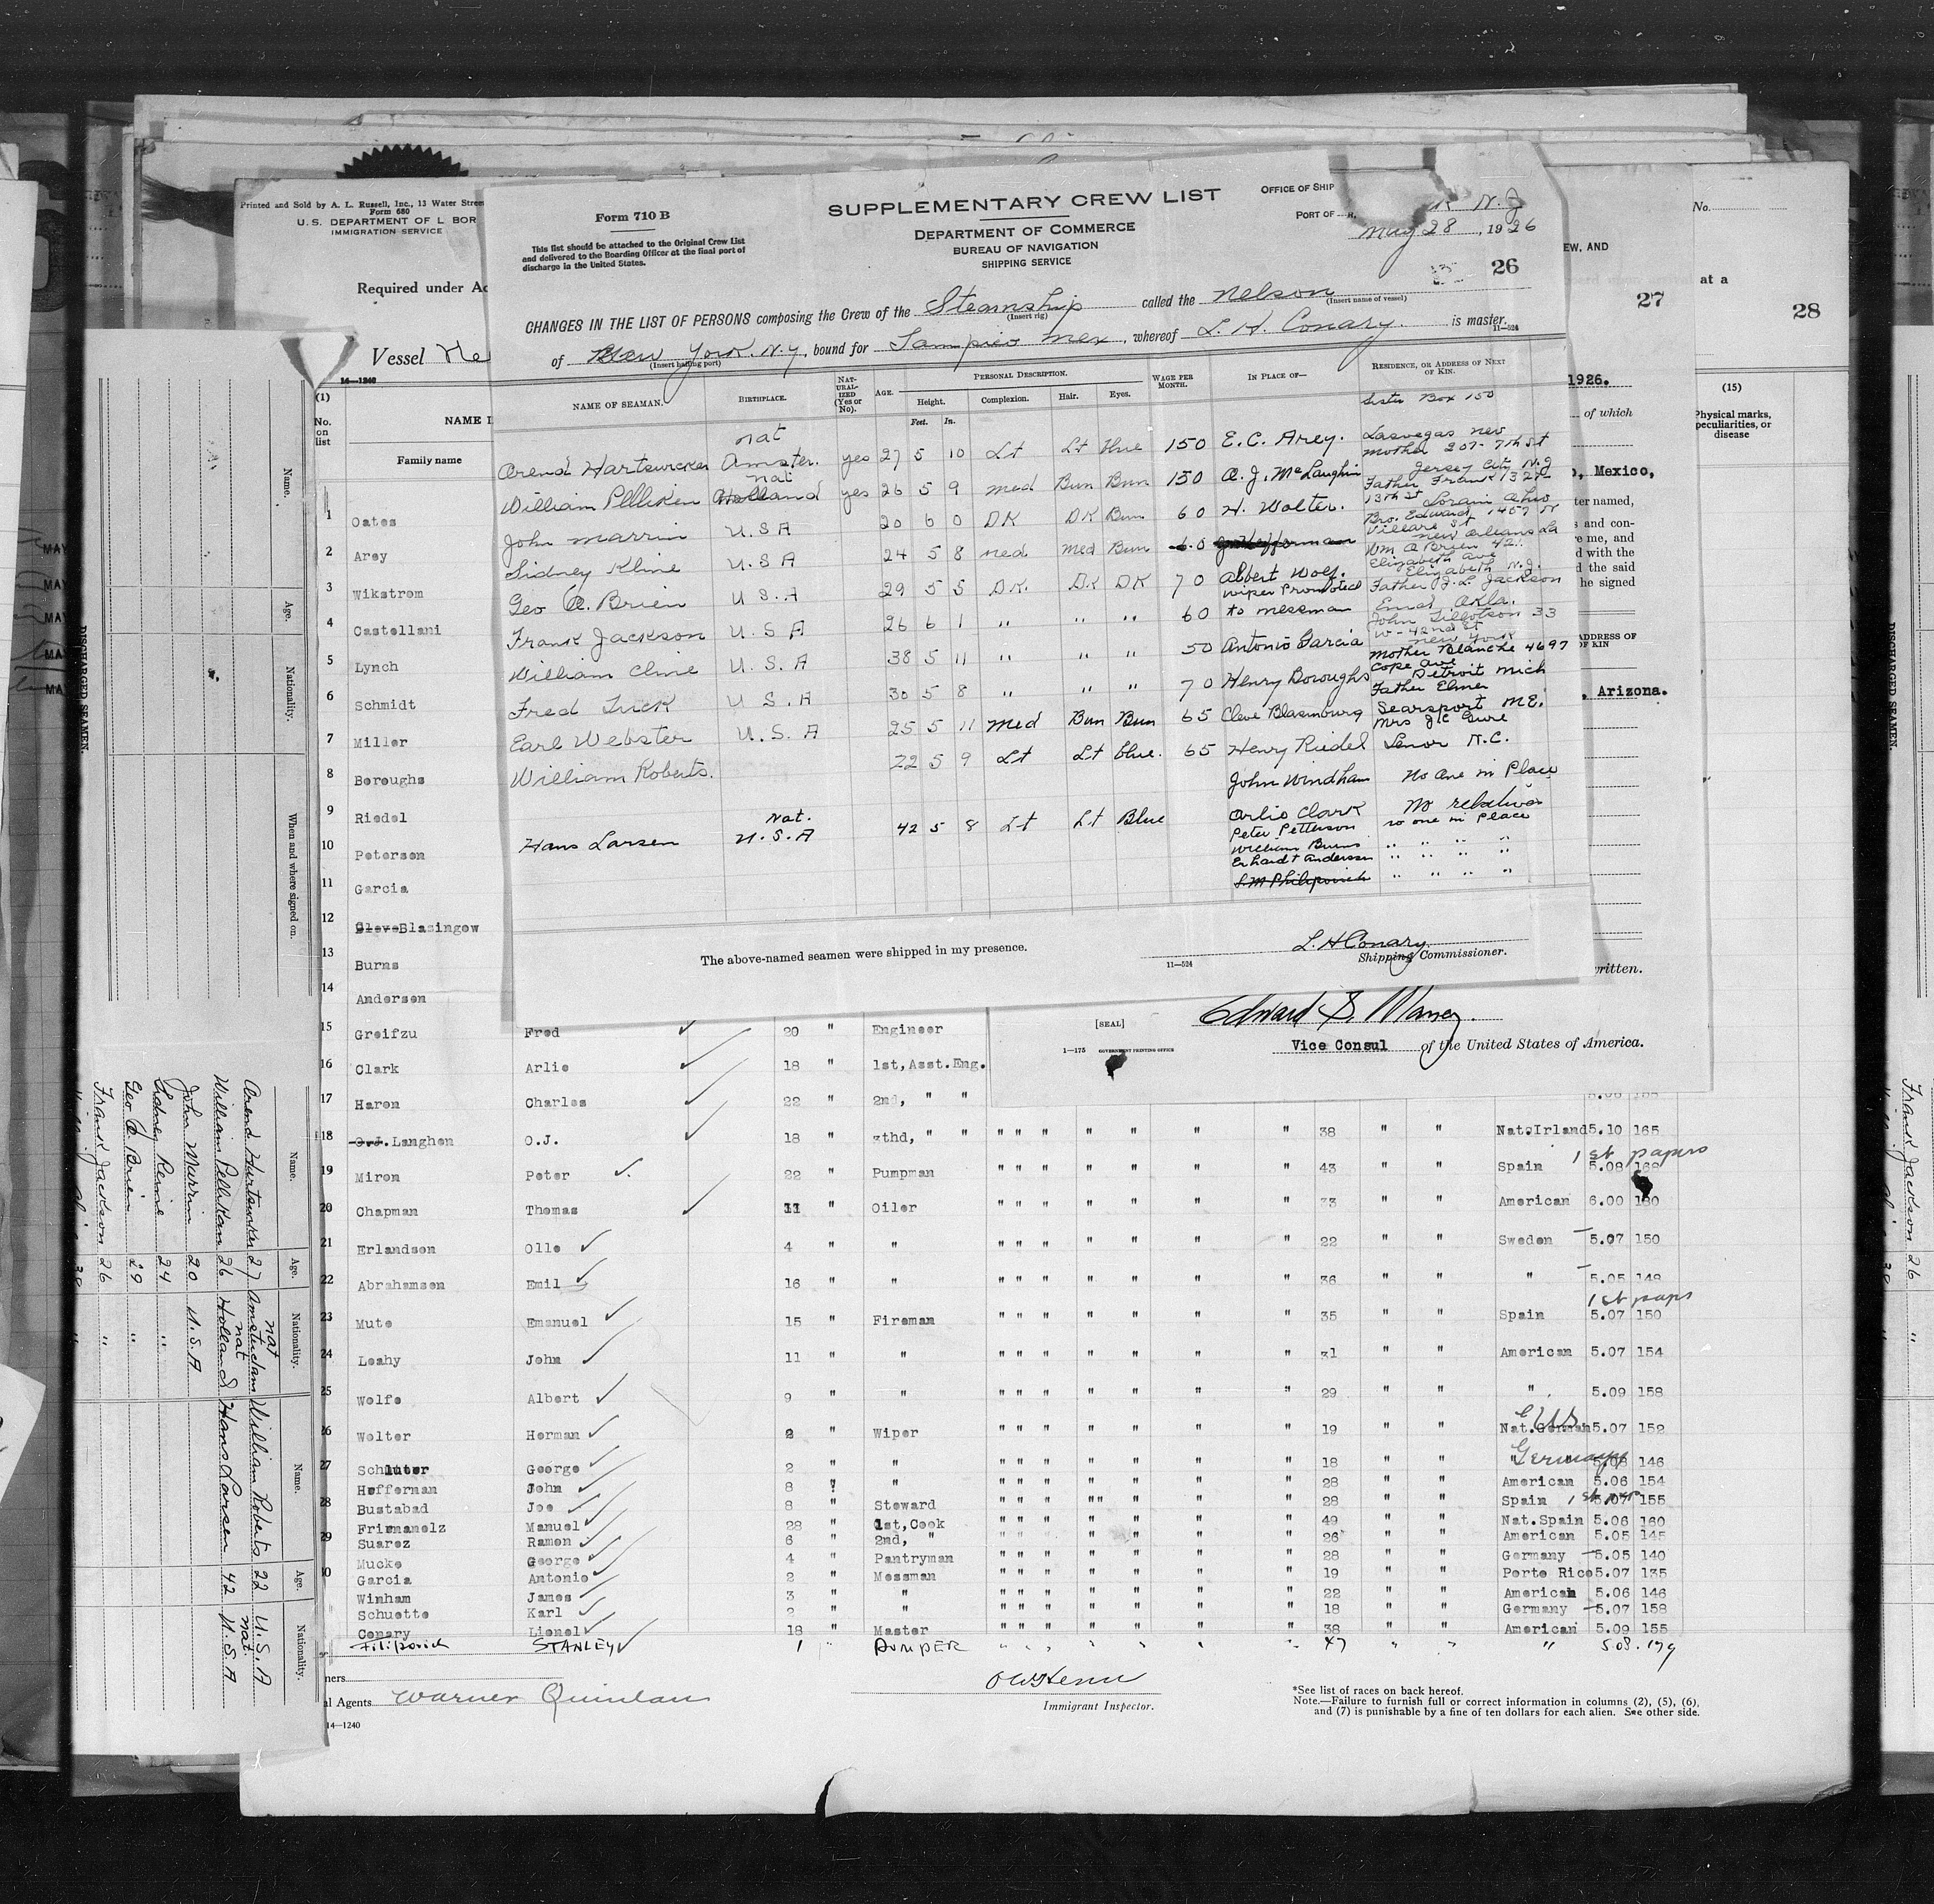 Printed and Sold by A. L. Russell, Inc., 13 Water Stree
Form 680
U.S. DEPARTMENT OF L BOR
IMMIGRATION SERVICE
Required under Ac
Vessel Ne
14—1240
(1)
No. on list
NAME I
Family name
Form 710 B
This list should be attached to the Original Crew List
and delivered to the Boarding Officer at the final port of
discharge in the United States.
SUPPLEMENTARY CREW LIST
DEPARTMENT OF COMMERCE
BUREAU OF NAVIGATION
SHIPPING SERVICE
OFFICE OF SHIP
PORT OF
N. J
May 28, 1926
26
CHANGES IN THE LIST OF PERSONS composing the Crew of the Steamship called the Nelson
(Insert rig) (Insert name of vessel)
of New York. N.Y, bound for Tampico Mex, whereof L. H. Conary. is master.
(Insert hailing port) 11—524
NAME OF SEAMAN. BIRTHPLACE. NATURALIZED (Yes or No). AGE. PERSONAL DESCRIPTION. WAGE PER MONTH. IN PLACE OF— RESIDENCE, OR ADDRESS OF NEXT OF KIN.
Height. Complexion. Hair. Eyes.
Feet. In.
Sister Box 150
nat
Arend Hartswicker Amster. yes 27 5 10 Lt Lt Blue 150 E. C. Arey. Lasvegas nev
mother 207- 7th St
nat
William Pelliken Holland yes 26 5 9 med Bun Bun 150 O. J. McLaughin Jersey City N.J
Father Frank 1327-
John Marrin U.S.A 20 6 0 DK DK Bun 60 H. Wolter. 13th St Lorain Ohio
Bro. Edward 1407 N
Sidney Kline U.S.A 24 5 8 med Med Bun 60 Villare St
New Orleans La
Wm O Brien 421
Geo O. Brien U.S.A 29 5 5 DK. DK DK 70 Albert Wolf. Elizabeth Ave
Elizabeth N.J.
Wiper Promoted Father J. L. Jackson
Frank Jackson U.S.A 26 6 1 " " " 60 to messman Enid Okla.
John Tillotson 33
W- 42nd St
New York
William Cline U.S.A 38 5 11 " " " 50 Antonio Garcia Mother Blanche 4697
Cope Ave
Detroit Mich
Fred Tuck U.S.A 30 5 8 " " " 70 Henry Boroughs Father Elmer
Earl Webster U.S.A 25 5 11 Med Bun Bun 65 Cleve Blasinburg Searsport ME.
Mrs J C Gure
William Roberts. 22 5 9 Lt Lt blue. 65 Henry Riedel Lenor N.C.
John Windham No One in Place
Arlie Clark No relatives
Nat.
Hans Larsen U.S.A 42 5 8 Lt Lt Blue Peter Petterson no one in Place
William Burns " " " "
Erhardt Andersen " " " "
S.M Philipovich " " " "
The above-named seamen were shipped in my presence.
L. H Conary
11—524 Shipping Commissioner.
EW, AND
27
1926.
of which
, Mexico,
ter named,
s and con-
re me, and
d with the
d the said
he signed
ADDRESS OF
OF KIN
, Arizona.
written.
No.
at a
28
(15)
Physical marks, peculiarities, or disease
[SEAL] Edward S. Maney.
1—175 GOVERNMENT PRINTING OFFICE Vice Consul of the United States of America.
1 Oates
2 Arey
3 Wikstrom
4 Castellani
5 Lynch
6 Schmidt
7 Miller
8 Boroughs
9 Riedel
10 Petersen
11 Garcia
12 Cleve Blasingow
13 Burns
14 Andersen
15 Greifzu Fred 20 " Engineer
16 Clark Arlie 18 " 1st, Asst. Eng.
17 Haron Charles 22 " 2nd, " "
18 O.J. Langhen O.J. 18 " 3thd, " " " " " " " " " 38 " " Nat.Irland 5.10 165
1st papers
19 Miron Peter 22 " Pumpman " " " " " " " 43 " " Spain 5.08 168
20 Chapman Thomas 11 " Oiler " " " " " " " 33 " " American 6.00 180
21 Erlandson Olle 4 " " " " " " " " " 22 " " Sweden 5.07 150
22 Abrahamsen Emil 16 " " " " " " " " " 36 " " " 5.05 148
1st paps
23 Mute Emanuel 15 " Fireman " " " " " " " 35 " " Spain 5.07 150
24 Leahy John 11 " " " " " " " " " 31 " " American 5.07 154
25 Wolfe Albert 9 " " " " " " " " " 29 " " " 5.09 158
26 Wolter Herman 2 " Wiper " " " " " " " 19 " " Nat.German 5.07 152
27 Schluter George 2 " " " " " " " " " 18 " " Germany 5.06 146
Heffernan John 8 " " " " " " " " " 28 " " American 5.06 154
28 Bustabad Joe 8 " Steward " " " " " " " 28 " " Spain 5.07 155
Frirmanelz Manuel 28 " 1st, Cook " " " " " " " 49 " " Nat. Spain 5.06 160
29 Suarez Ramon 6 " 2nd, " " " " " " " " 26 " " American 5.05 145
Mucke George 4 " Pantryman " " " " " " " 28 " " Germany 5.05 140
30 Garcia Antonio 2 " Messman " " " " " " " 19 " " Porto Rico 5.07 135
Winham James 3 " " " " " " " " " 22 " " American 5.06 146
Schuette Karl 2 " " " " " " " " " 18 " " Germany 5.07 158
Conary Lionel 18 " Master " " " " " " " 38 " " American 5.09 155
Filipovich STANLEY 1 " PUMPER " " " " " " " 47 " " " 5.08. 179
ners
l Agents Warner Quinlan
Immigrant Inspector.
*See list of races on back hereof.
Note.—Failure to furnish full or correct information in columns (2), (5), (6),
and (7) is punishable by a fine of ten dollars for each alien. See other side.
14—1240
DISCHARGED SEAMEN.
Name. Age. Nationality. When and where signed on.
Name. Age. Nationality. Name. Age. Nationality.
Arend Hartswicker 27 nat Amsterdam William Roberts 22 U.S.A
William Pellikan 26 nat Holland Hans Larsen 42 nat. U.S.A
John Marrin 20 U.S.A
Sidney Kline 24 "
Geo O. Brien 29 "
Frank Jackson 26 "
DISCHARGED SEAMEN.
Frank Jackson 26 "